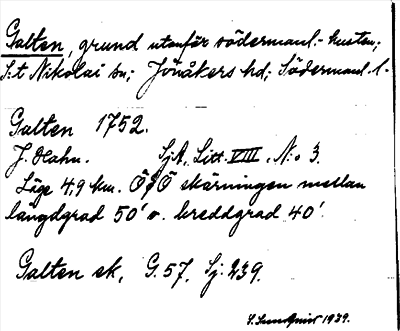 Galten, grund utanför södermanl.- kusten;
S:t Nikolai sn; Jönåkers hd; Södermanl. l.
Galten 1752.
J. Hahn. SjA, Litt. VIII, N:o 3.
Läge 4,9 km. ÖSÖ skärningen mellan
längdgrad 50' o. breddgrad 40'.
Galten ek, G.57, Sj. 239.
S. Sundquist 1939.